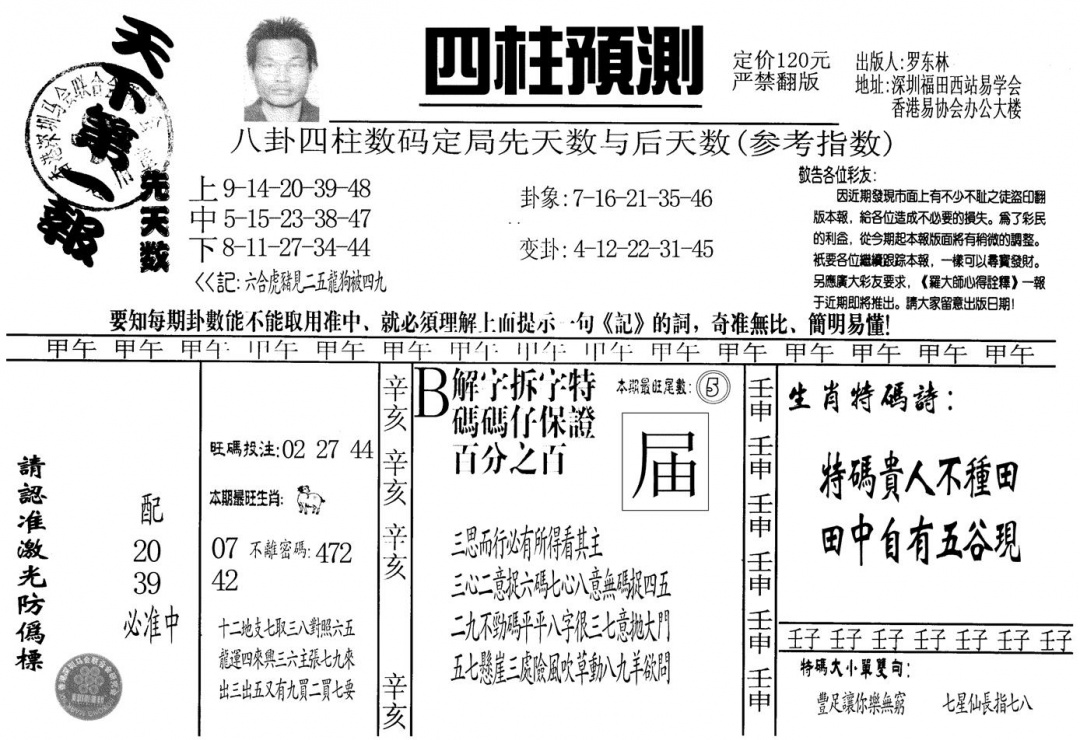 天下第一報
四柱預測
定价120元
严禁翻版
出版人:罗东林
地址:深圳福田西站易学会
香港易协会办公大楼
八卦四柱数码定局先天数与后天数(参考指数)
先天数
上9-14-20-39-48
中5-15-23-38-47
下8-11-27-34-44
卦象:7-16-21-35-46
变卦:4-12-22-31-45
<<記:六合虎豬見二五龍狗被四九
敬告各位彩友:
因近期發現市面上有不少不恥之徒盜印翻
版本報,給各位造成不必要的損失。為了彩民
的利益,從今期起本報版面將有稍微的調整。
衹要各位繼續跟踪本報,一樣可以尋寶發財。
另應廣大彩友要求,《羅大師心得詮釋》一報
于近期即將推出。請大家留意出版日期!
要知每期卦數能不能取用准中、就必須理解上面提示一句《記》的詞,奇准無比、簡明易懂!
甲午 甲午 甲午 甲午 甲午 甲午 甲午 甲午 甲午 甲午 甲午 甲午 甲午 甲午 甲午
請認准激光防僞標
配
20
39
必准中
旺碼投注:02 27 44
本期最旺生肖:
07 不離密碼:472
42
十二地支七取三八對照六五
龍運四來興三六主張七九來
出三出五又有九買二買七要
辛亥 辛亥 辛亥 辛亥
B解字拆字特
碼碼仔保證
百分之百
本期最旺尾數:5
届
三思而行必有所得看其主
三心二意捉六碼七心八意無碼捉四五
二九不勁碼平平八字很三七意拋大門
五七懸崖三處險風吹草動八九羊欲問
壬申 壬申 壬申 壬申 壬申 壬申
生肖特碼詩:
特碼貴人不種田
田中自有五谷現
壬子 壬子 壬子 壬子 壬子 壬子 壬子
特碼大小單雙句:
豐足讓你樂無窮 七星仙長指七八